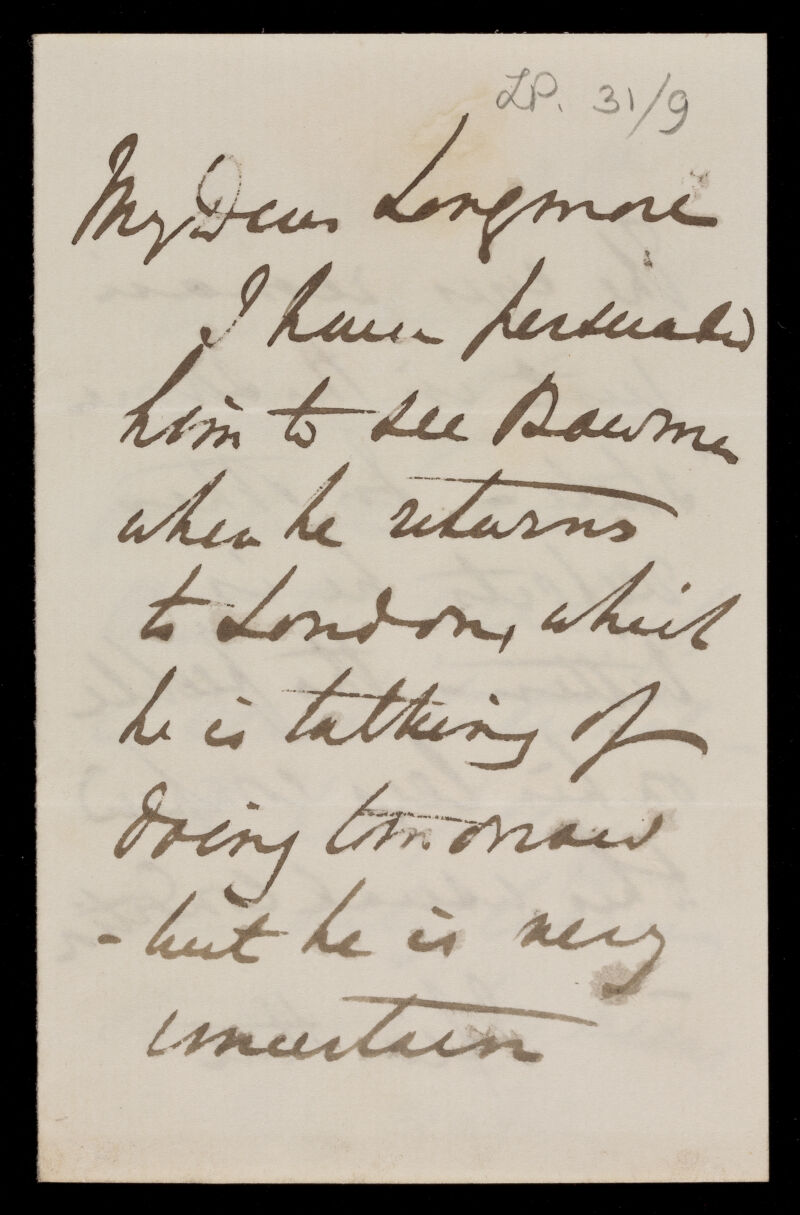 LP. 31/9
My Dear Longmore
I have persuaded
him to see Bowman
when he returns
to London, which
he is talking of
doing tomorrow
- but he is very
uncertain